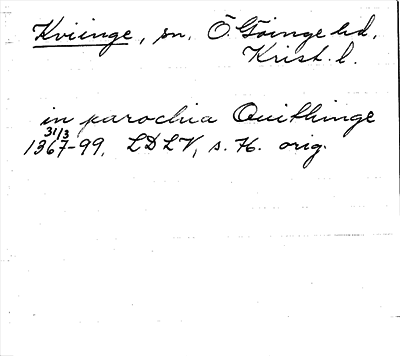 Kviinge, sn. Ö. Göinge hd,
Krist. l.
in parochia Quithinge
31/3
1367-99, LDLV, s. 76. orig.